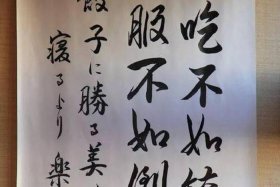 吃不如
服不如倒
餃子に勝る美
寝るより楽